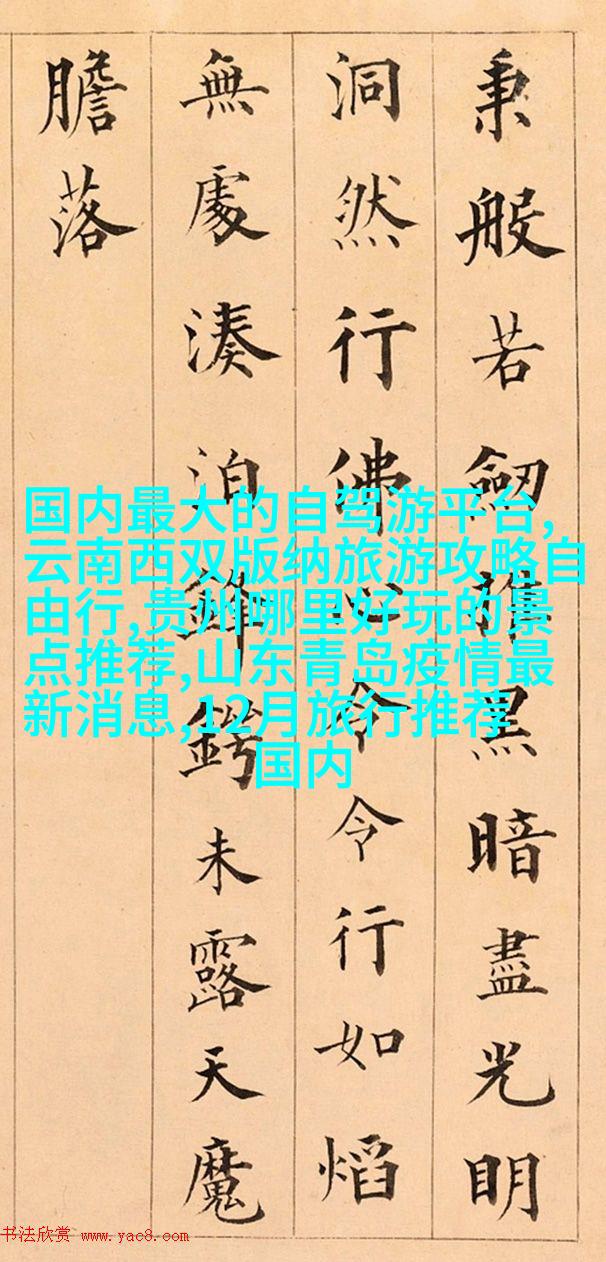 秉般若劒推黑暗盡光明
洞然行佛心令令行如熖
無處湊泊鋒鍔未露天魔
膽落
国内最大的自驾游平台,
云南西双版纳旅游攻略自
由行,贵州哪里好玩的景
点推荐,山东青岛疫情最
新消息,12月旅行推荐
国内
书法欣赏 www.yac8.com